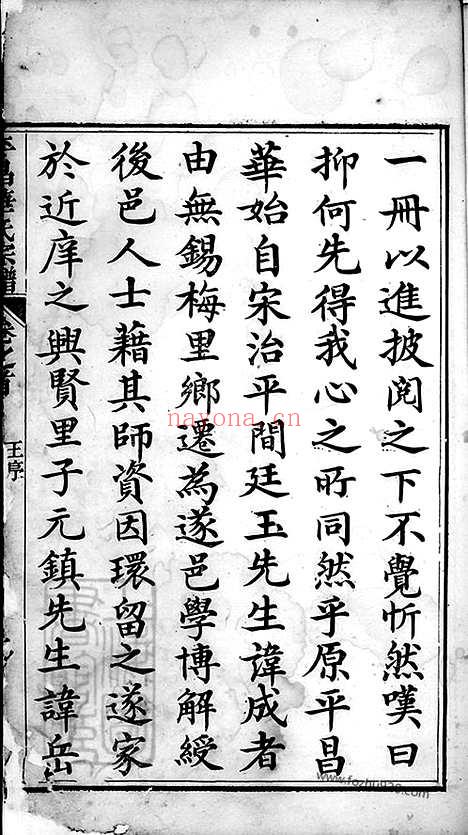 一冊以進披閱之下不覺忻然嘆曰
抑何先得我心之所同然乎原平昌
華始自宋治平間廷玉先生諱成者
由無錫梅里鄉遷為遂邑學博解綬
後邑人士藉其師資因環留之遂家
於近庠之興賢里子元鎮先生諱岳
昌華氏宗譜
卷之首
王序
nayona.cn